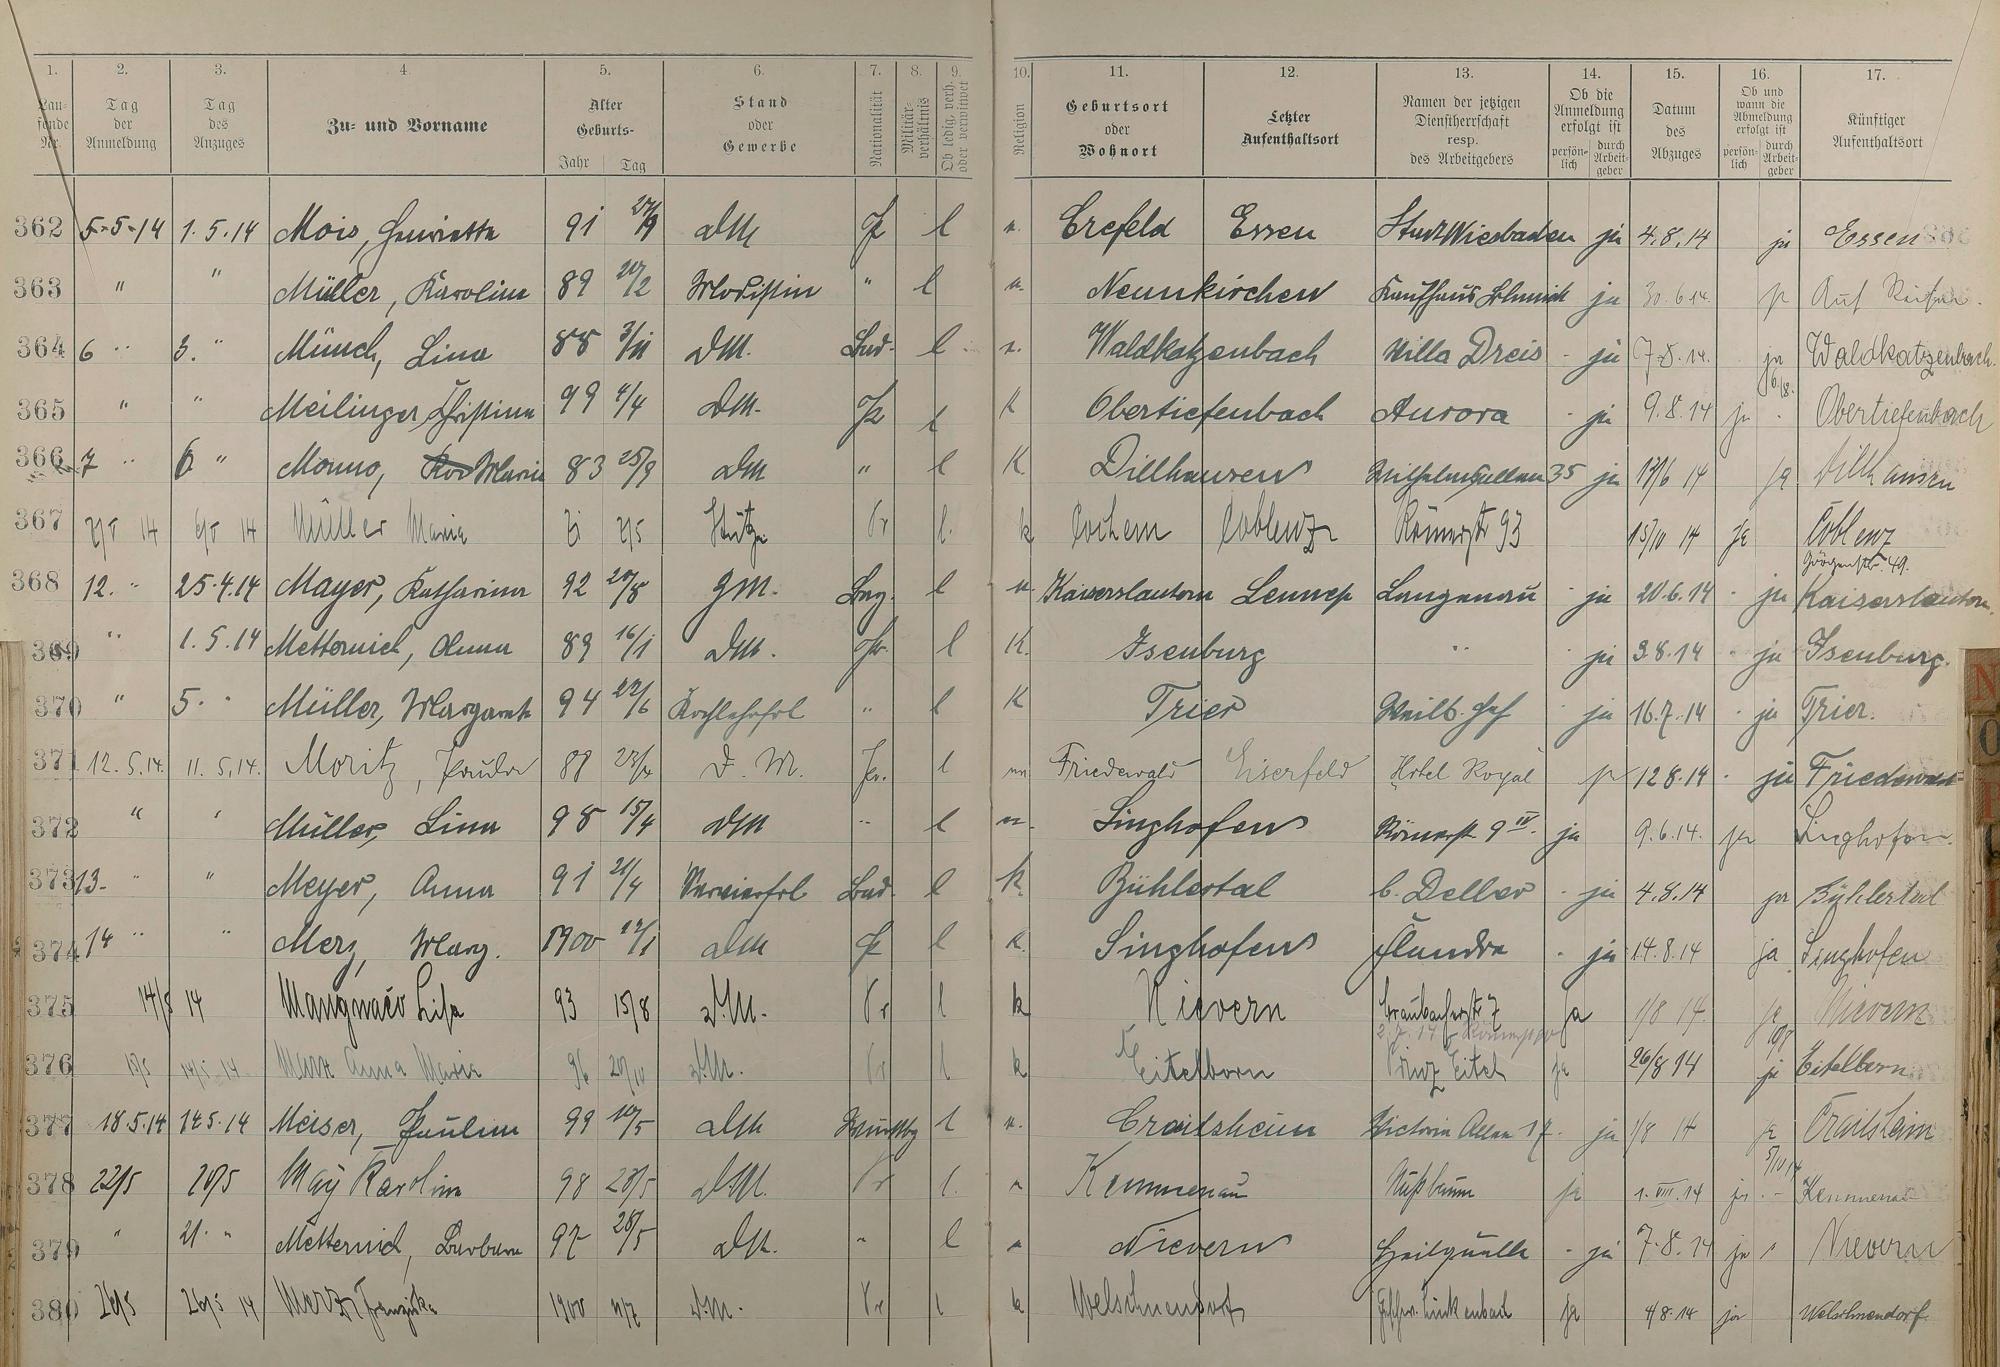 1. 2. 3. 4. 5. 6. 7. 8. 9. 10. 11. 12. 13. 14. 15. 16. 17.
Lau-fende Nr. Tag der Anmeldung Tag des Anzuges Zu- und Vorname Alter Geburts- Jahr Tag Stand oder Gewerbe Nationalität Militär-verhältnis Ob ledig, verh. oder verwitwet Religion Geburtsort oder Wohnort Letzter Aufenthaltsort Namen der jetzigen Dienstherrschaft resp. des Arbeitgebers Ob die Anmeldung erfolgt ist persön-lich durch Arbeit-geber Datum des Abzuges Ob und wann die Abmeldung erfolgt ist persön-lich durch Arbeit-geber Künftiger Aufenthaltsort
362 5-5-14 1.5.14 Mois, Henriette 91 DM l Crefeld Essen Stadt Wiesbaden ja 4.8.14 ja Essen
363 " " Müller, Karoline 89 Modistin " l Neunkirchen Kaufhaus Schmidt ja 30.6.14. Auf Reisen.
364 6 " 3. " Münch, Lina 88 3/11 DM. Bad. l Waldkatzenbach Villa Dreis ja 7.8.14. ja Waldkatzenbach.
365 " " Meilinger Christine 99 4/4 DM. l K Obertiefenbach Aurora ja 9.8.14 ja Obertiefenbach
366 7 " 6 " Marie 83 25/9 DM " l K Dillhausen Wilhelmsallee 35 ja 17/6 14 ja Dillhausen
367 14 14 Müller Maria Stütze Pr l. k Cochem Coblenz Römerstr 93 15/10 14 Ja Coblenz
49.
368 12. " 25.4.14 Mayer, Katharina 92 Bay. l Kaiserslautern Lennep Langenau ja 20.6.14 ja Kaiserslautern.
369 " 1.5.14 Metternich, Anna 89 16/1 DM. Pr. l K. Isenburg " ja 3.8.14 ja Isenburg.
370 " 5. " Müller, Margarete 94 22/6 Kochlehrfrl " l K Trier Weilb. Hof ja 16.7.14 ja Trier.
371 12.5.14. 11.5.14. Moritz, Paula D.M. Pr. l Friedewald Eiserfeld Hotel Royal 12.8.14 ja Friedewald
372 " " Müller, Lina 98 15/4 DM " l Singhofen Römerstr. 9 IV. ja 9.6.14. ja Singhofen.
373 13. " " Meyer, Anna 91 21/4 Servierfrl Bad. l k. Bühlertal C. Deller ja 4.8.14 ja Bühlertal
374 14 " " Merz, Marg. 1900 DM l Singhofen Flandra ja 14.8.14 ja Singhofen
375 14/5 14 Lisa 93 15/8 D.M. Pr l k Nievern Graubacherstr 7 Ja 1/8 14 ja Nievern
376 14 Anna Maria 96 20/10 D.M. Pr l k Eitelborn Prinz Eitel ja 26/8 14 ja Eitelborn
377 18.5.14 14.5.14 Meiser, Pauline 99 DM l Crailsheim Victoria Allee 17. ja 1/8 14 ja Crailsheim
378 22/5 20/5 May Karoline 98 28/5 D.M. Pr l. Kemmenau Nußbaum ja 1.VIII.14 ja Kemmenau
379 " 21. " Metternich, Barbara 28/5 DM. " l Nievern Heilquelle ja 7.8.14 ja Nievern
380 26/5 26/5 14 Franziska 1900 D.M. Pr l k Welschneudorf Ja 4/8.14 ja Welschneudorf